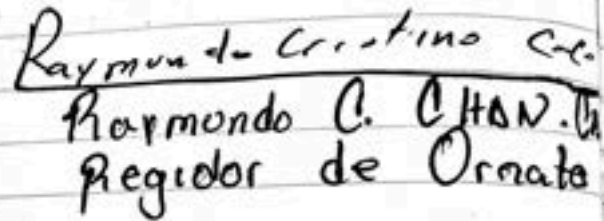 Raymundo Cristino
Raymondo C. CHAN.
Regidor de Ornato